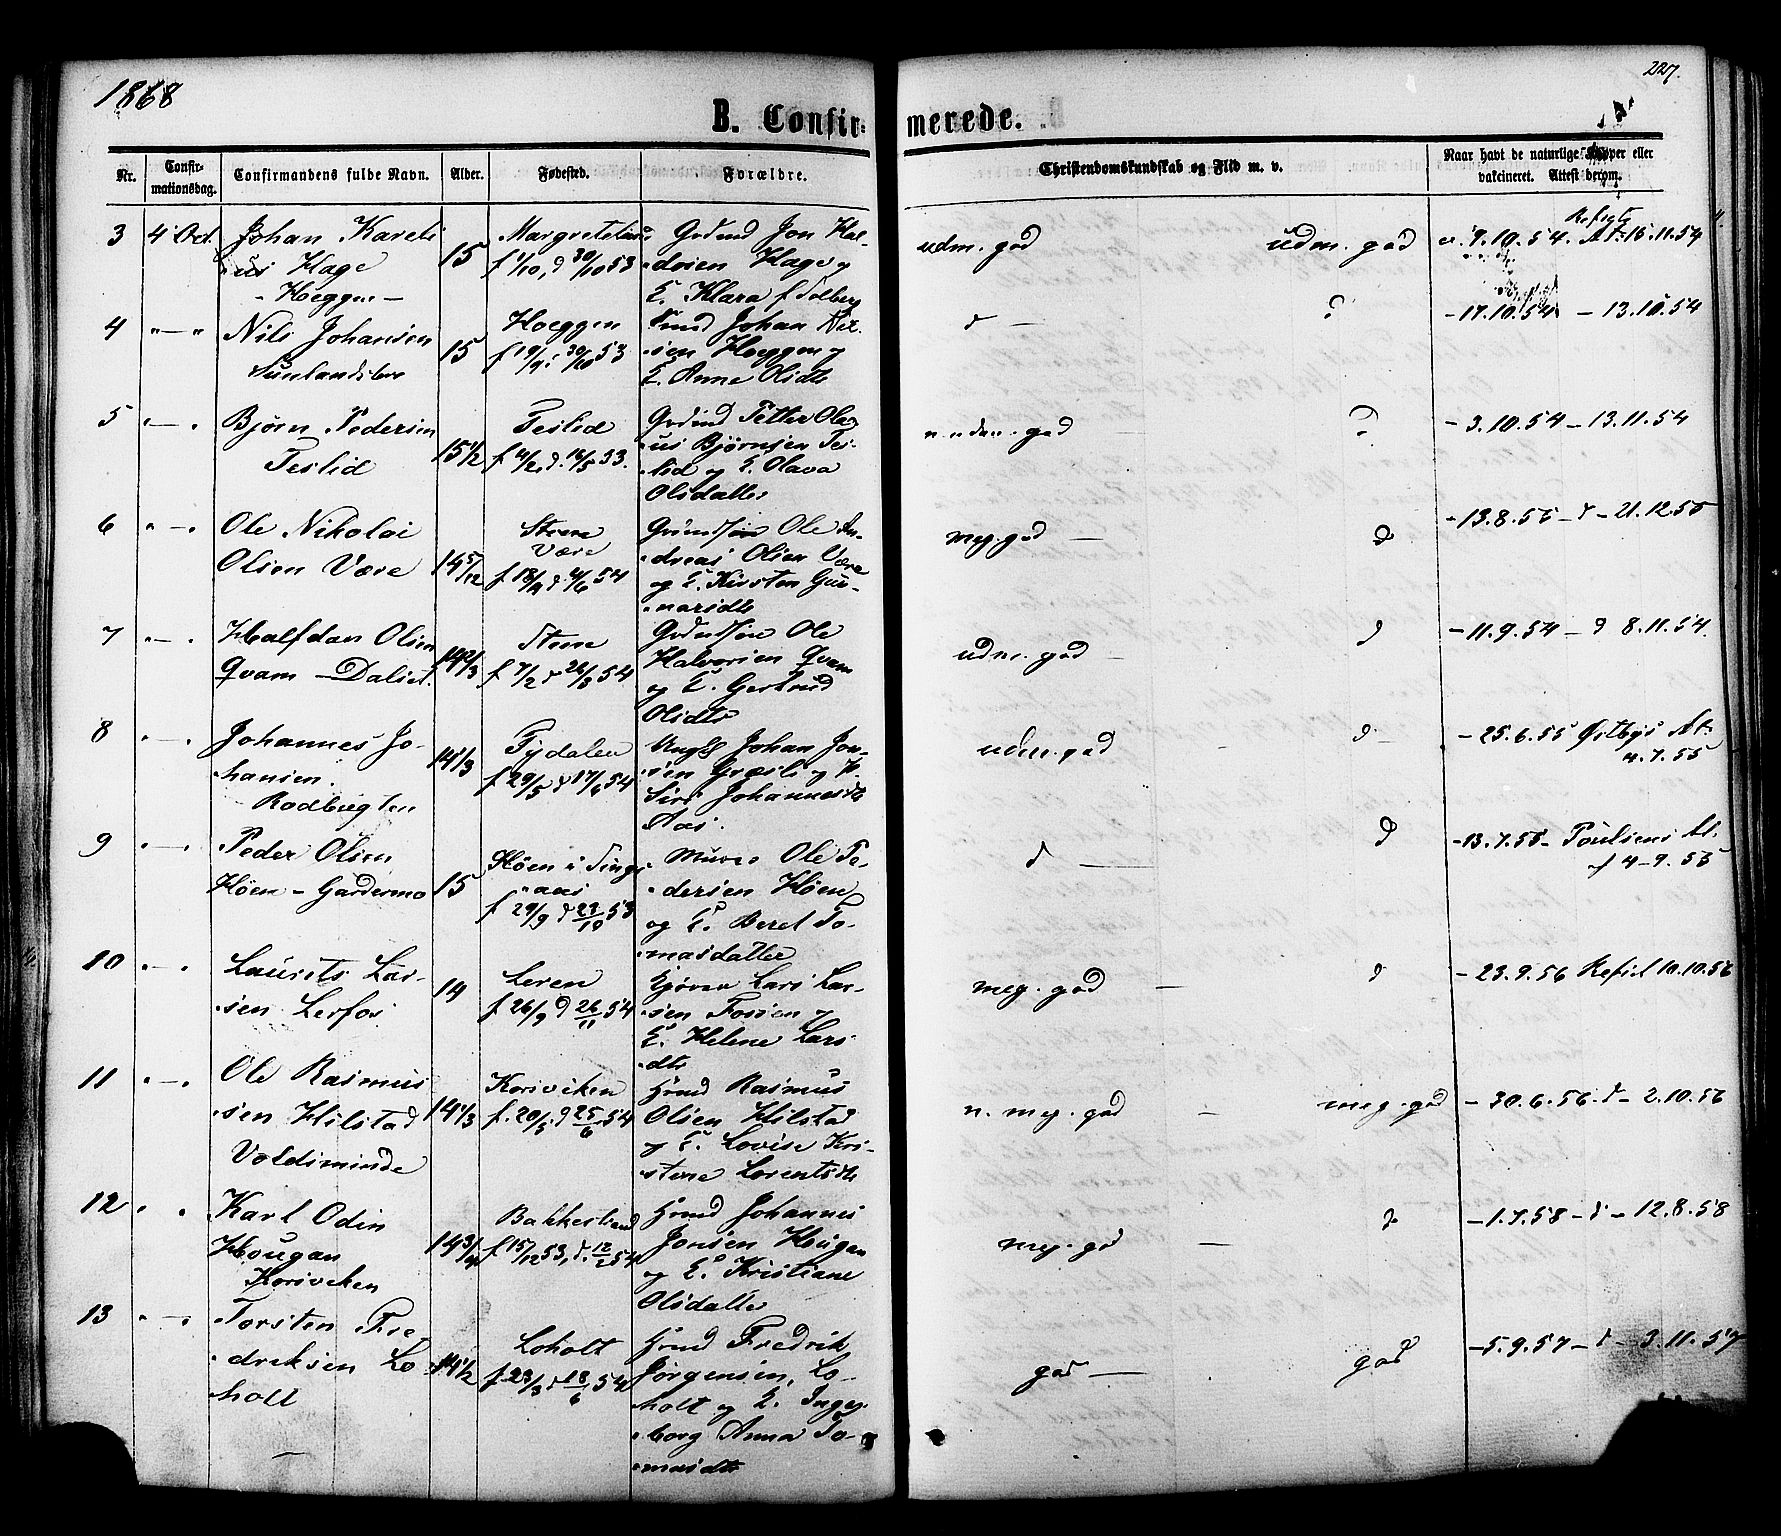 1868
227.
B. Confir= merede.
Nr. Confir-mationsdag. Confirmandens fulde Navn. Alder. Fødested. Forældre. Christendomskundskab og Flid m. v. Naar havt de naturlige Kopper eller vakcineret. Attest derom.
3 4 Oct. Johan Kareli
us Hage
- Heggen -
15
f 1/10, d 30/10 53
Grdmd Jon Hal-
dosen Hage og
E. Klara f Solberg
udm. god udm. god v. 9.10.54. At. 16.11.54
4 " — " Nils Johansen
Sunlandsbro
15
Hoeggen
f 19/9 30/10 53
Johan Nil-
sen Hoeggen og
E. Anne Olsdtr
d — 17.10.54 - 13.10.54
5 " — " Bjørn Pedersen
Teslid
15 1/2
Teslid
Grdmd Petter Ole-
us Bjørnsen Tes-
lid og E. Olava
Olsdatter
n. udm. god - 3.10.54 - 13.11.54
6 " — " Ole Nikolai
Olsen Være
14 5/12
Være
f 18/4 d 4/6 54
Ole An-
dreas Olsen Være
og E. Kirsten Gun-
narsdtr
meg. god — d - 13.8.55 - d - 21.12.55
7 " — " Halfdan Olsen
Qvam - Dalset.
14 2/3
Stene
f 7/2 d 26/3 54
Ole
Halvorsen Qvam
og E. Gertrud
Olsdtr
udm. god — d - 11.9.54 - d 8.11.54
8 " — " Johannes Jo-
hansen.
Rodbugten
14 1/3
Tydalen
f 29/5 d 17/6 54
Ungk Johan Jon-
sen Græsli og P.
Siri Johannesdtr
Aas.
udm. god - d - 25.6.55 Østbys At.
4.7.55
9 " — " Peder Olsen
Høen - Gardermo
15
Høen i Tings
aas
f 29/9 d 23/10 53
Ole Pe-
dersen Høen
og E. Beret To-
masdatter
d — d - 13.7.55 - Poulsens At.
4-9.55
10 " — " Laurits Lar-
sen Lerfos
14
Leren
f 26/9 d 26/11 54
Lars Lar-
sen Fossen og
E. Helene Lars
dtr
meg. god — d - 23.9.56 10.10.56
11 " — " Ole Rasmus
sen Hilstad
Voldsminde
14 1/3
Korsviken
f. 20/5 d 25/6 54
Hsmd Rasmus
Olsen Hilstad
og E. Lovise Kri-
stene Lorentsdtr
n. meg. god — meg. god - 30.6.56. d - 2.10.56
12 " " Karl Odin
Hougan
Korsviken
14 3/4
Bakkestrand
f 15/12 53, d. 12/2 54
Hsmd Johannes
Jonsen Hougan
og E. Kristiane
Olsdatter
meg. god — d - 1.7.58 - d - 12.8.58
13 " — " Torsten Fre-
driksen Lo
holt
14 1/2
Loholt
f 23/3 d 18/6 54
Hsmd Fredrik
Jørgensen, Lo-
holt og E. Inge-
borg Anna To-
masdtr
god — god - 5.9.57 - d - 3.11.57